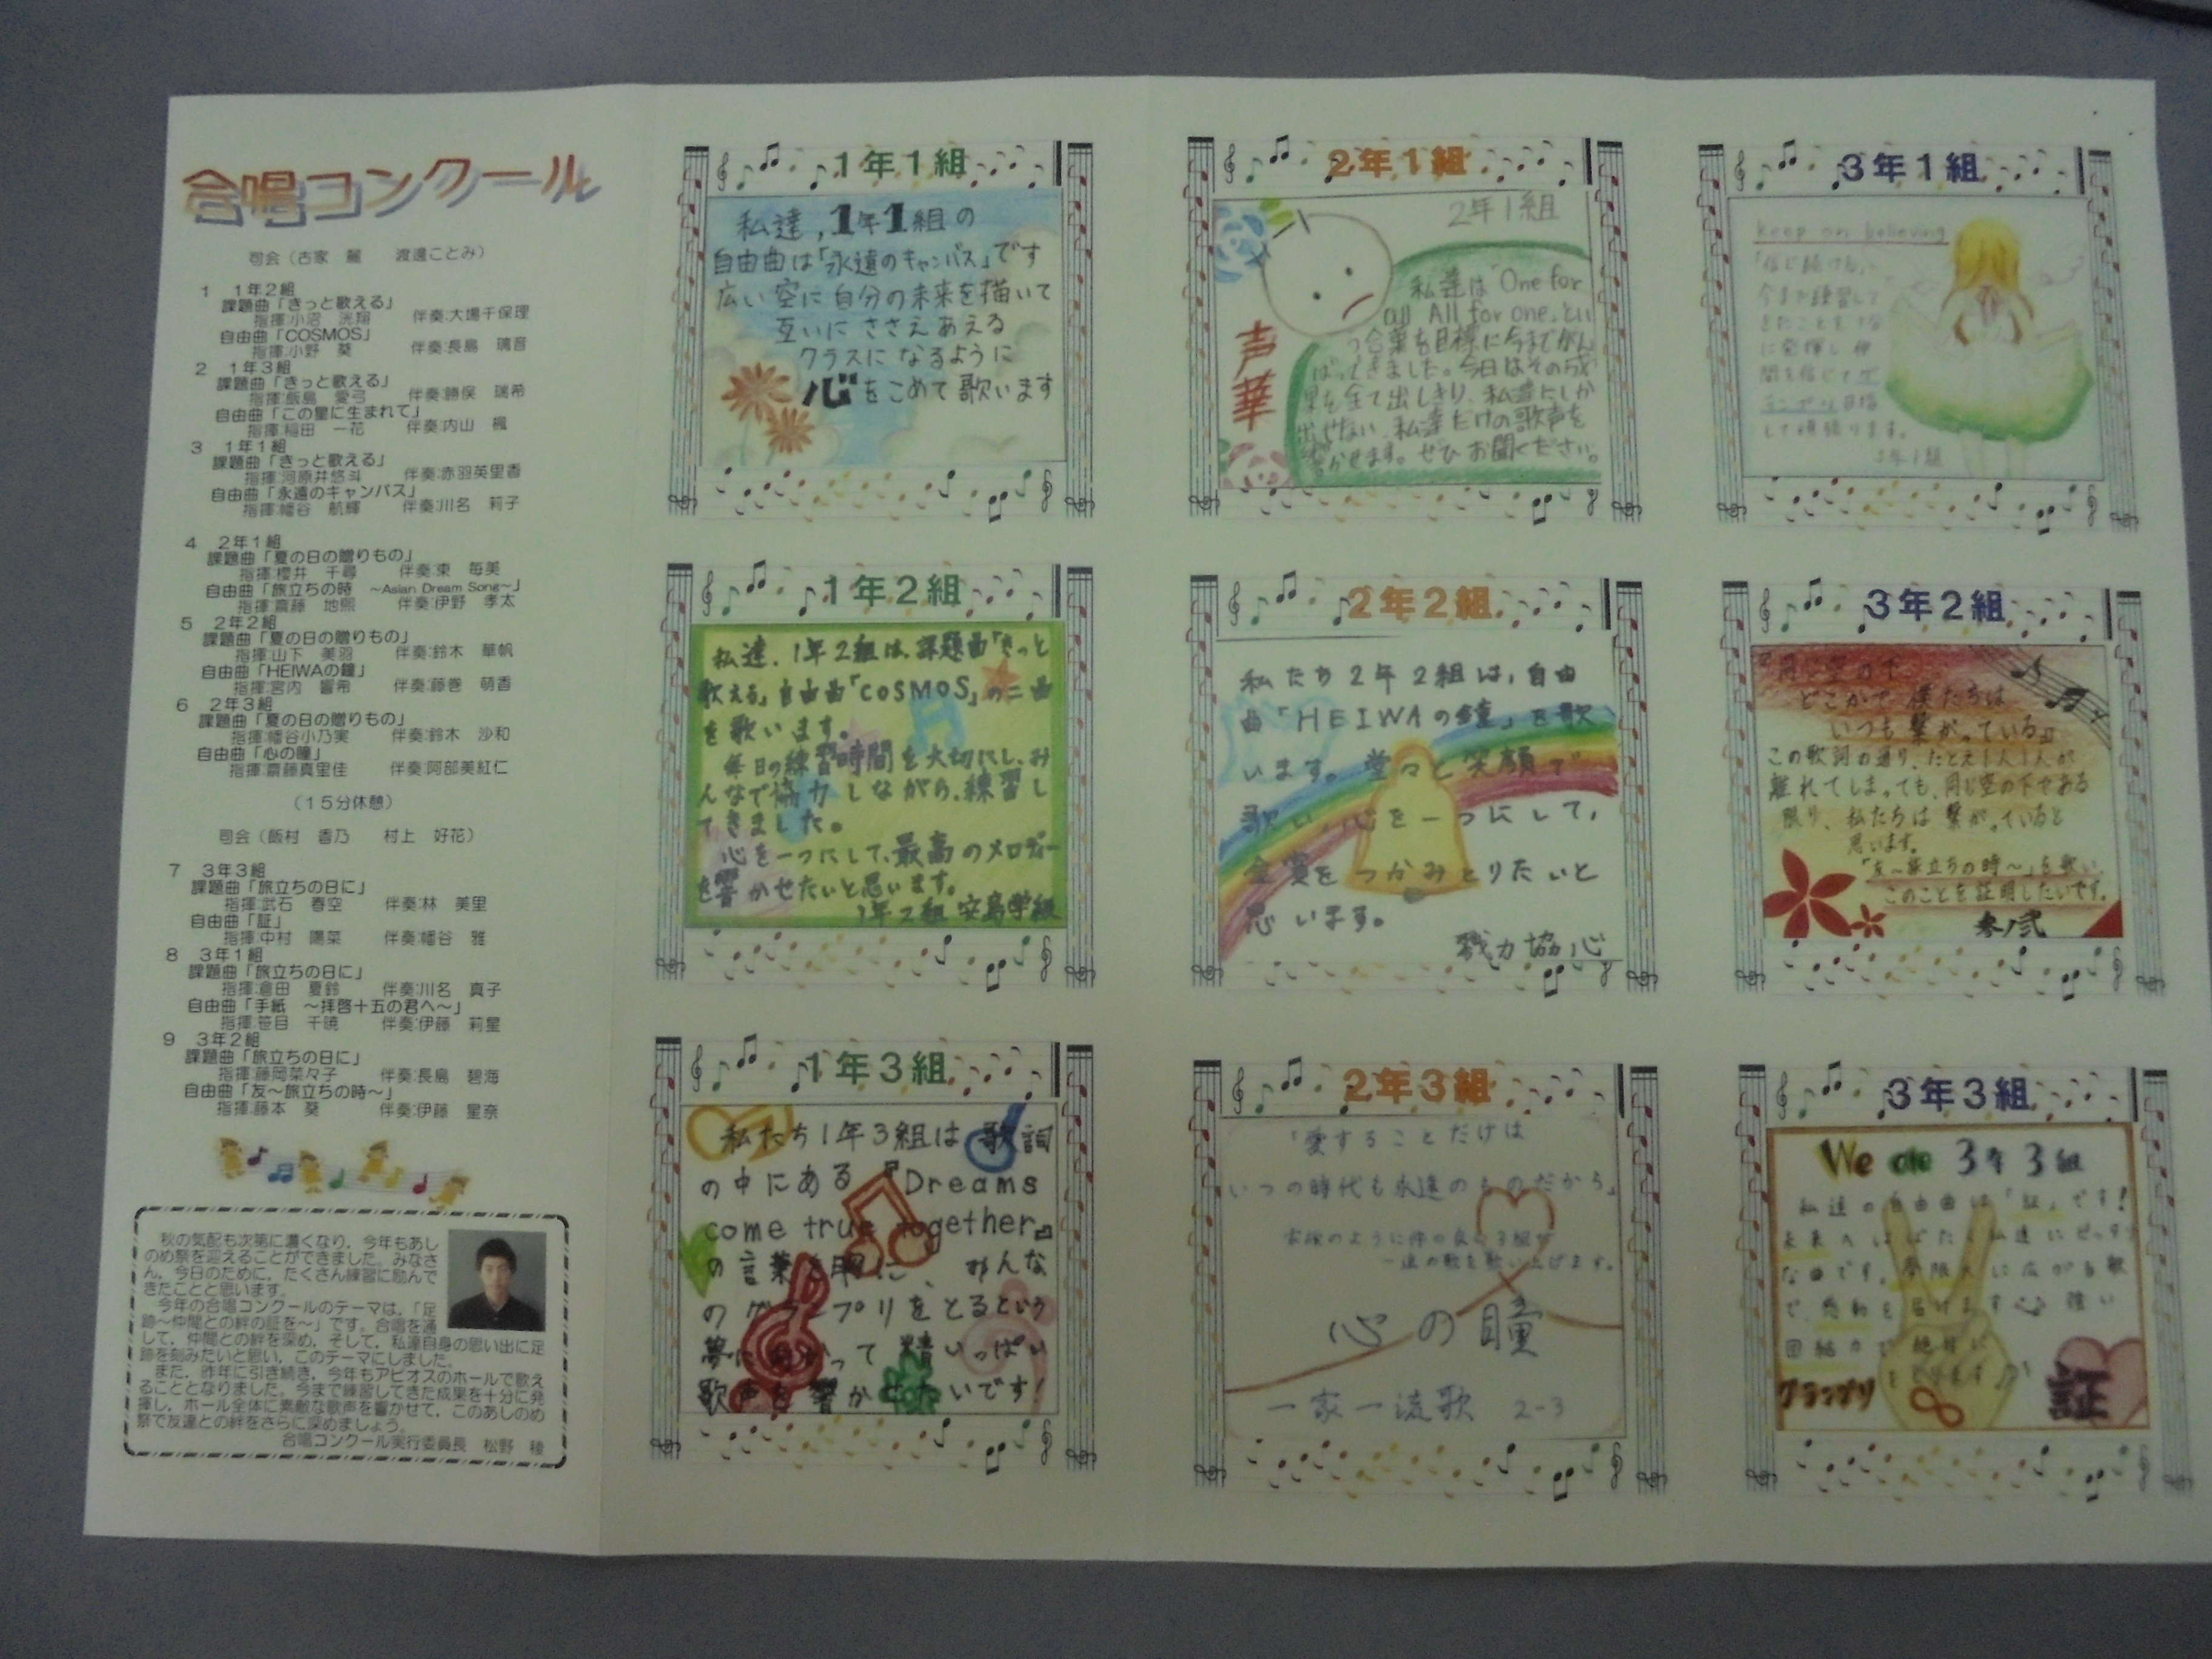 合唱コンクール
司会（古家　麗　　渡邉ことみ）
1　1年2組
課題曲「きっと歌える」
指揮:小沼　洸翔　　伴奏:大場千保理
自由曲「COSMOS」
指揮:小野　葵　　伴奏:長島　璃音
2　1年3組
課題曲「きっと歌える」
指揮:飯島　愛弓　　伴奏:勝俣　瑞希
自由曲「この星に生まれて」
指揮:稲田　一花　　伴奏:内山　楓
3　1年1組
課題曲「きっと歌える」
指揮:河原井悠斗　　伴奏:赤羽英里香
自由曲「永遠のキャンバス」
指揮:幡谷　航輝　　伴奏:川名　莉子
4　2年1組
課題曲「夏の日の贈りもの」
指揮:櫻井　千尋　　伴奏:東　毎美
自由曲「旅立ちの時　～Asian Dream Song～」
指揮:齋藤　地熙　　伴奏:伊野　孝太
5　2年2組
課題曲「夏の日の贈りもの」
指揮:山下　美羽　　伴奏:鈴木　華帆
自由曲「HEIWAの鐘」
指揮:宮内　響希　　伴奏:藤巻　萌香
6　2年3組
課題曲「夏の日の贈りもの」
指揮:幡谷小乃実　　伴奏:鈴木　沙和
自由曲「心の瞳」
指揮:齋藤真里佳　　伴奏:阿部美紅仁
（15分休憩）
司会（飯村　香乃　　村上　好花）
7　3年3組
課題曲「旅立ちの日に」
指揮:武石　春空　　伴奏:林　美里
自由曲「証」
指揮:中村　陽菜　　伴奏:幡谷　雅
8　3年1組
課題曲「旅立ちの日に」
指揮:倉田　夏鈴　　伴奏:川名　真子
自由曲「手紙　～拝啓十五の君へ～」
指揮:笹目　千暁　　伴奏:伊藤　莉星
9　3年2組
課題曲「旅立ちの日に」
指揮:藤岡菜々子　　伴奏:長島　碧海
自由曲「友～旅立ちの時～」
指揮:藤本　葵　　伴奏:伊藤　星奈
秋の気配も次第に濃くなり，今年もあし
のめ祭を迎えることができました。みなさ
ん，今日のために，たくさん練習に励んで
きたことと思います。
今年の合唱コンクールのテーマは，「足
跡～仲間との絆の証を～」です。合唱を通
して，仲間との絆を深め，そして，私達自身の思い出に足
跡を刻みたいと思い，このテーマにしました。
また，昨年に引き続き，今年もアピオスのホールで歌え
ることとなりました。今まで練習してきた成果を十分に発
揮し，ホール全体に素敵な歌声を響かせて，このあしのめ
祭で友達との絆をさらに深めましょう。
合唱コンクール実行委員長　松野　稜
1年1組
私達，1年1組の
自由曲は「永遠のキャンバス」です
広い空に自分の未来を描いて
互いにささえあえる
クラスになるように
心をこめて歌います
1年2組
私達、1年2組は、課題曲「きっと
歌える」自由曲「COSMOS」の二曲
を歌います。
毎日の練習時間を大切にし、み
んなで協力しながら、練習し
てきました。
心を一つにして、最高のメロディー
を響かせたいと思います。
1年2組 安島学級
1年3組
私たち1年3組は 歌詞
の中にある『Dreams
come true together』
の言葉を胸に、みんな
のグランプリをとるという
夢に向かって精いっぱい
歌声を響かせたいです!
2年1組
2年1組
声華
私達は「One for
all All for one」とい
う言葉を目標に今までがん
ばってきました。今日はその成
果を全て出しきり、私達にしか
出せない、私達だけの歌声を
響かせます。ぜひお聞ください。
2年2組
私たち2年2組は，自由
曲「HEIWAの鐘」を歌
います。堂々と笑顔で
歌い，心を一つにして，
金賞をつかみとりたいと
思います。
戮力協心
2年3組
「愛することだけは
いつの時代も永遠のものだから」
のように仲の良い3組が
一連の歌を歌い上げます。
心の瞳
一家一流歌 2-3
3年1組
keep on believing
「信じ続ける」
今まで練習して
きたことを十分
に発揮し 仲
間を信じて
目指
して頑張ります。
3年1組
3年2組
『同じ空の下
どこかで僕たちは
いつも繋がっている』
この歌詞の通り、たとえ1人1人が
離れてしまっても、同じ空の下である
限り、私たちは繋がっていると
思います。
「友～旅立ちの時～」を歌い、
このことを証明したいです。
参ノ弐
3年3組
We are 3年3組
私達の自由曲は「証」です!
未来へはばたく私達にピッタリ
な曲です。夢限大に広がる歌
で、感動を届けます 強い
団結力で絶対に
グランプリ
をとります
証